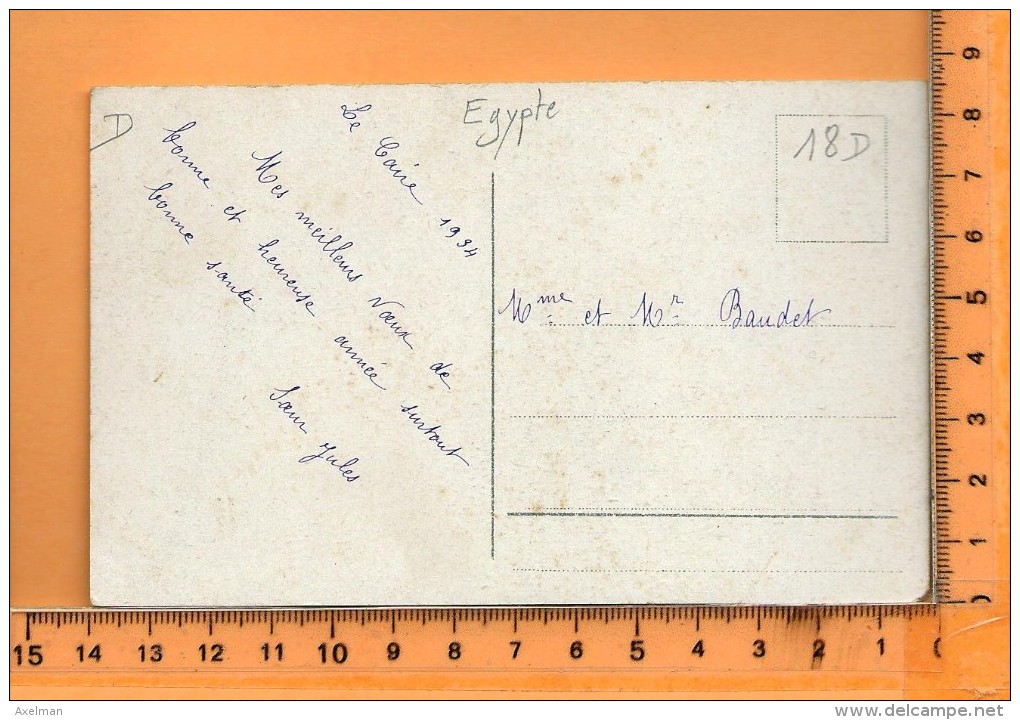 D
Egypte
18D
Le Caire 1934
Mes meilleurs vœux de
bonne et heureuse année surtout
bonne santé
Sœur Jules
Mme et Mr Baudet
9
8
7
6
5
4
3
2
1
0
15 14 13 12 11 10 9 8 7 6 5 4 3 2 1 0
Axelman
http://www.delcampe.net